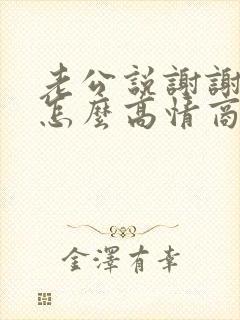 老公說謝謝
怎麼高情商
金澤有幸